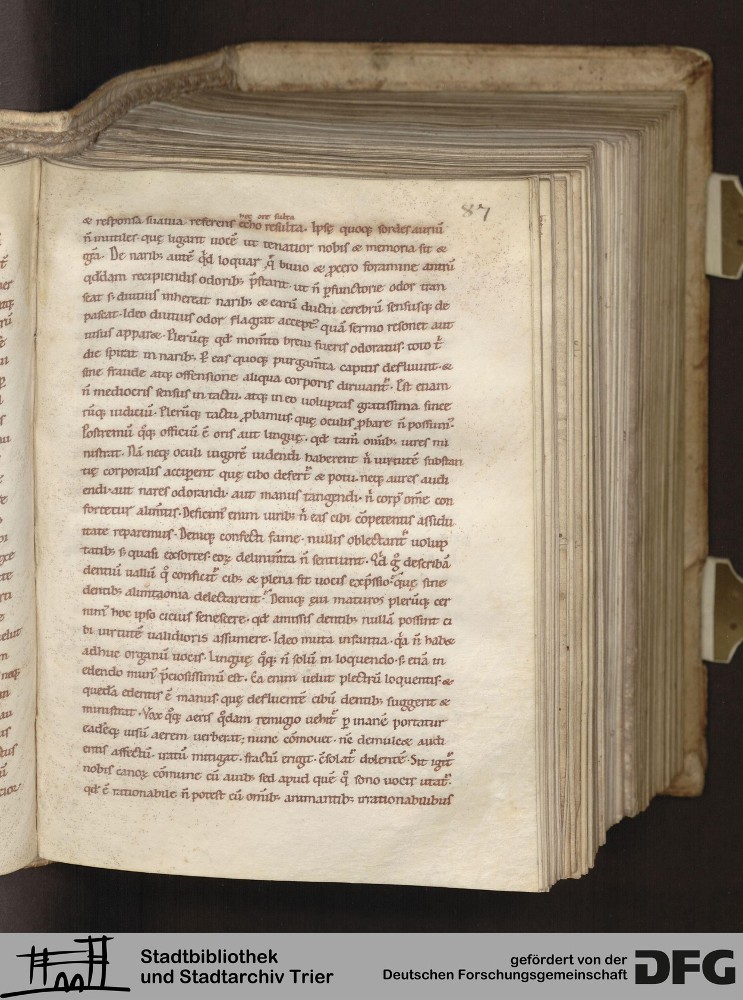 87
hęc ore fulta
& responsa suauia referens echo resulta. Ipsę quoq; sordes auriū
n̄ inutiles. quę ligant uocē ut tenatior nobis & memoria sit &
grā. De narib; autē qd loquar, q̄ biuio & pcero foramine antrū
qddam recipiendis odorib; p̄stant. ut n̄ pfunctorie odor tran
seat s; diutius inhereat narib; & earū ductu cerebrū sensusq; de
pascat. Ideo diutius odor flagrat acceptꝰ quā sermo resonet aut
uisus appareat. Plerūq; qd momto breui fueris odoratus. toto t̄
die spirat in narib;. P eas quoq; purgam̄ta capitis defluunt. &
sine fraude atq; offensione aliqua corporis diriuant̄. Est etiam
n̄ mediocris sensus in tactu. atq; in eo uoluptas gratissima since
rūq; iudiciū. Plerūq; tactu pbamus. quę oculis pbare n̄ possumꝰ.
Postremū qq; officiū ē oris aut linguę. qd tam̄ omib; uires mi
nistrat. Nā neq; oculi uigorē uidendi haberent n̄ uirtutē substan
tię corporalis acciperent quę cibo defert̄ & potu. neq; aures audi
endi. aut nares odorandi. aut manus tangendi. n̄ corpꝰ om̄e con
fortetur alim̄tis. Deficimꝰ enim uirib; n̄ eas cibi cōpetentis assidu
itate reparemus. Deniq; confecti fame. nullis oblectant̄ uolup
tatib; s; quasi exsortes eorꝝ delinim̄ta n̄ sentiunt. Qd g̊ describā
dentiū uallū q̊ conficit̄ cib; & plena fit uocis exp̄ssio. quę sine
dentib; alimonia delectarent̄. Deniq; & maturos plerūq; cer
nimꝰ hoc ipso citius senescere. qd amissis dentib; nullā possint ci
bi uirtutē ualidioris assumere. Ideo muta infantia. qa n̄ habet
adhuc organū uocis. Linguę qq; n̄ solū in loquendo. s; etiā in
edendo munꝰ p̄ciosissimū est. Ea enim uelut plectrū loquentis. &
quedā edentis ē manus. quę defluentē cibū dentib; suggerit &
ministrat. Vox qq; aeris qdam remigio uehit̄ p inane portatur
eadeq; uisū aerem uerberat; nunc cōmouet. n̄c demulcet audi
entis affectū. iratū mitigat. fractū erigit. c̄solat̄ dolentē. Sit igit̄
nobis canorꝝ cōmune cū auib; sed apud quē q̊ sono uocis utat̄.
qd ē rationabile n̄ potest cū omib; animantib; irrationabilibus
Stadtbibliothek
und Stadtarchiv Trier
gefördert von der
Deutschen Forschungsgemeinschaft
DFG